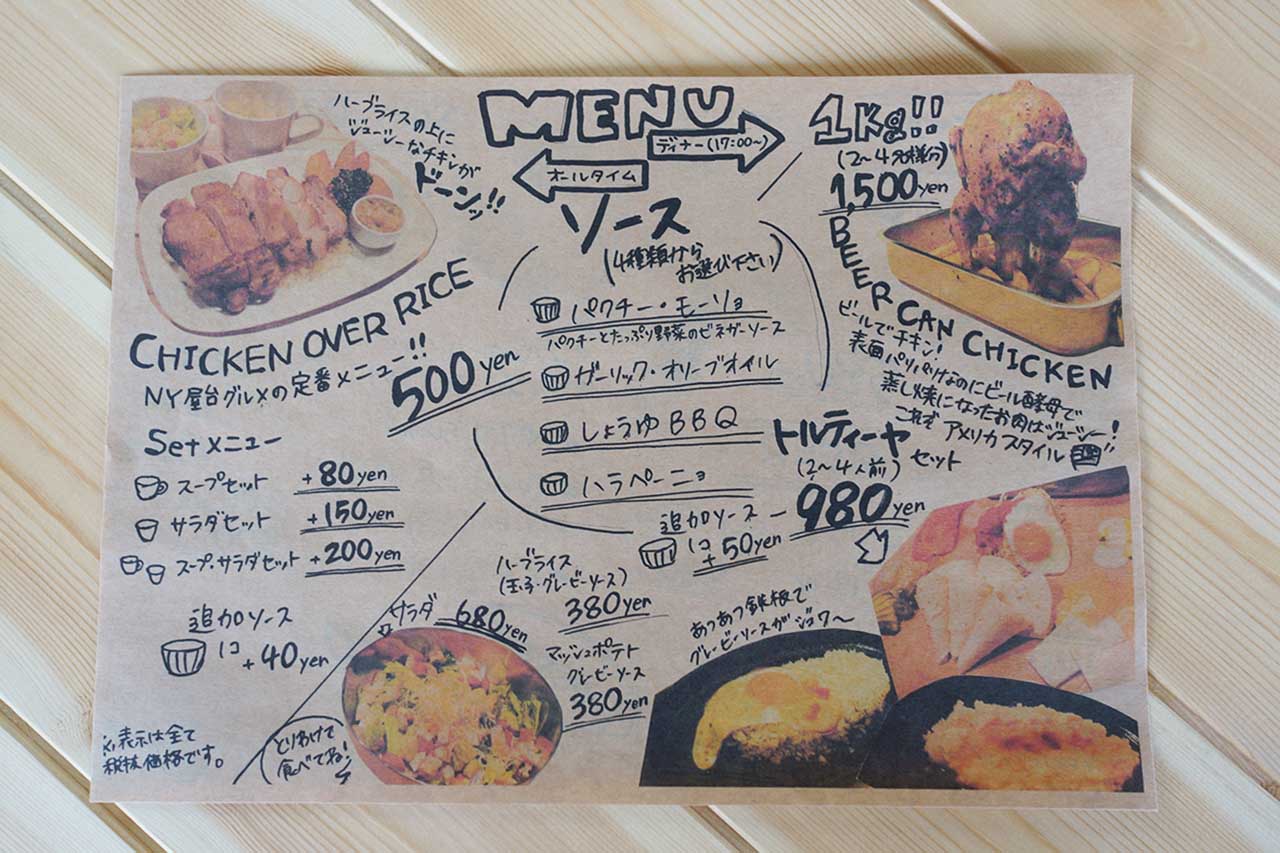 MENU
ディナー(17:00~)
オールタイム
ハーブライスの上に
ジューシーなチキンが
ドーンッ!!
CHICKEN OVER RICE
NY屋台グルメの定番メニュー!!
500yen
Setメニュー
スープセット +80yen
サラダセット +150yen
スープ・サラダセット +200yen
追加ソース
1コ
+40yen
※表示は全て
税抜価格です。
ソース
(4種類から
お選び下さい)
パクチー・モーリョ
パクチーとたっぷり野菜のビネガーソース
ガーリック・オリーブオイル
しょうゆBBQ
ハラペーニョ
追加ソース
1コ
+50yen
1Kg!!
(2~4名様分)
1,500yen
BEER CAN CHICKEN
ビールでチキン!
表面パリパリなのにビール酵母で
蒸し焼になったお肉はジューシー!
これぞ アメリカスタイル
トルティーヤ セット
(2~4人前)
980yen
ハーブライス
(玉子・グレービーソース)
380yen
サラダ 680yen
マッシュポテト
グレービーソース
380yen
とりわけて
食べてね!
あつあつ鉄板で
グレービーソースがジュワ~